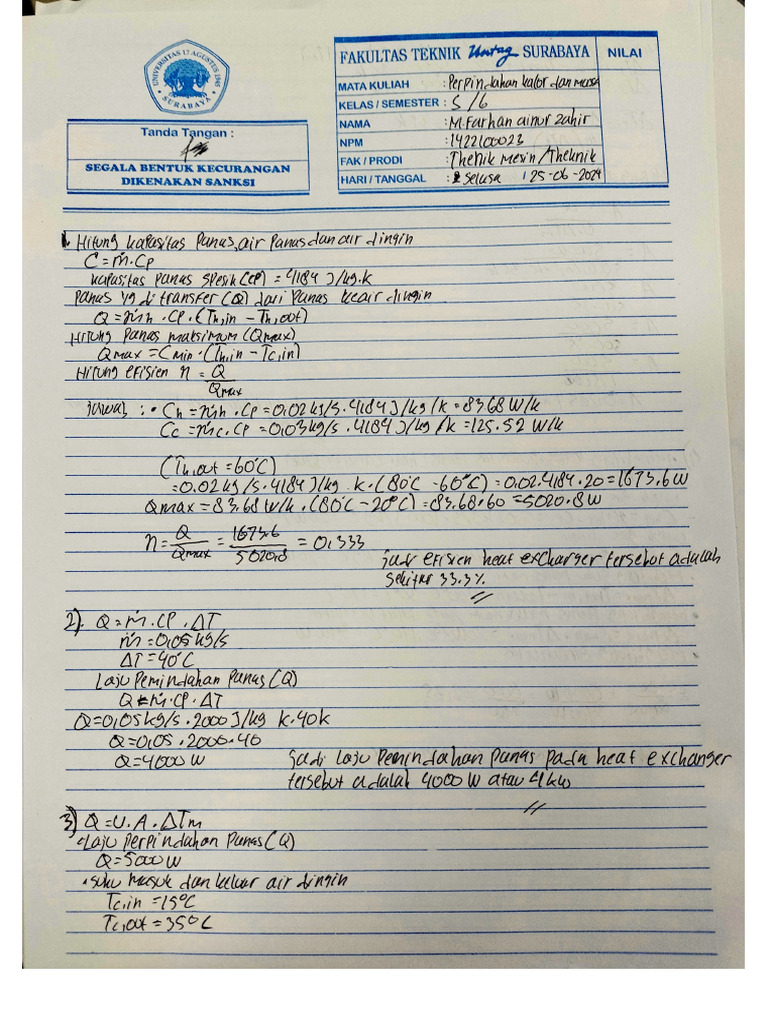 UNIVERSITAS 17 AGUSTUS 1945
SURABAYA
Tanda Tangan :
SEGALA BENTUK KECURANGAN
DIKENAKAN SANKSI
FAKULTAS TEKNIK Untag SURABAYA
NILAI
MATA KULIAH : Perpindahan kalor dan massa
KELAS / SEMESTER : S/6
NAMA : M.Farhan ainur Zahir
NPM : 1422100023
FAK / PRODI : Theknik mesin/Theknik
HARI / TANGGAL : Selasa / 25-06-2024
1. Hitung kapasitas Panas, air Panas dan air dingin
C = ṁ.Cp
kapasitas Panas spesik (CP) = 4184 J/kg.k
Panas yg di transfer (Q) dari Panas keair dingin
Q = ṁh . CP . (Th,in - Th,out)
Hitung Panas maksimum (Qmax)
Qmax = Cmin . (Th,in - Tc,in)
Hitung efisien η = Q
Qmax
Jawab : • Ch = ṁh . CP = 0.02 kg/s . 4184 J/kg/k = 8368 W/k
Cc = ṁc. CP = 0,03 kg/s . 4184 J/kg/k = 125.52 W/k
(Th,out = 60°C)
= 0.02 kg/s . 4184 J/kg k . (80°C - 60°C) = 0.02.4184.20 = 1673.6 W
Qmax = 83.68 W/k . (80°C - 20°C) = 83.68.60 = 5020.8 W
η = Q/Qmax = 1673.6/5020.8 = 0,333
Jadi efisien heat exchanger tersebut adalah
sekitar 33.3%
2). Q = ṁ . CP . ΔT
ṁ = 0,05 kg/s
ΔT = 40°C
Laju Pemindahan Panas (Q)
Q = ṁ . CP . ΔT
Q = 0,05 kg/s . 2000 J/kg k . 40k
Q = 0,05 . 2000 . 40
Q = 4000 W
Jadi laju Pemindahan Panas pada heat exchanger
tersebut adalah 4000 W atau 4 kw
3) Q = U . A . ΔTm
• Laju Perpindahan Panas (Q)
Q = 5000 W
• Suhu Masuk dan keluar air dingin
Tc,in = 15°C
Tc,out = 35°C